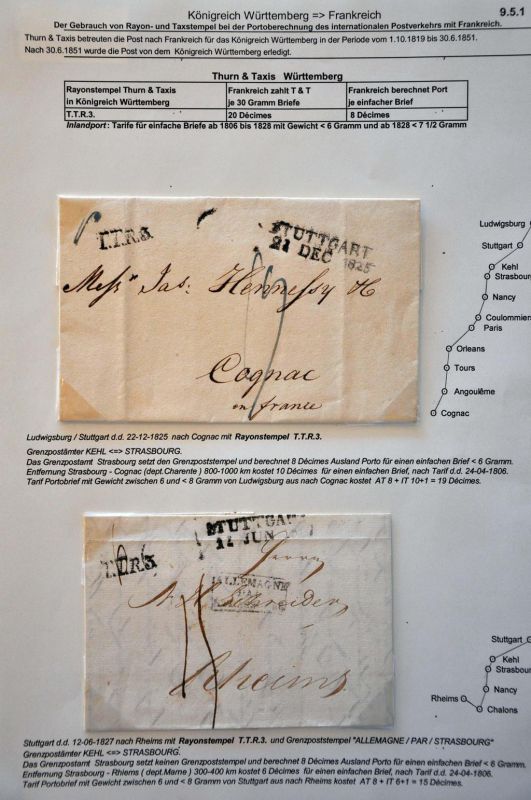 Königreich Württemberg => Frankreich
9.5.1
Der Gebrauch von Rayon- und Taxstempel bei der Portoberechnung des internationalen Postverkehrs mit Frankreich.
Thurn & Taxis betreuten die Post nach Frankreich für das Königreich Württemberg in der Periode vom 1.10.1819 bis 30.6.1851.
Nach 30.6.1851 wurde die Post von dem Königreich Württemberg erledigt.
Thurn & Taxis Württemberg
Rayonstempel Thurn & Taxis Frankreich zahlt T & T Frankreich berechnet Port
in Königreich Württemberg je 30 Gramm Briefe je einfacher Brief
T.T.R.3. 20 Décimes 8 Décimes
Inlandport: Tarife für einfache Briefe ab 1806 bis 1828 mit Gewicht < 6 Gramm und ab 1828 < 7 1/2 Gramm
T.T.R.3.
STUTTGART
21 DEC 1825
Messrs Jas: Hennessy & C
Cognac
en france
Ludwigsburg
Stuttgart
Kehl
Strasbourg
Nancy
Coulommiers
Paris
Orleans
Tours
Angoulême
Cognac
Ludwigsburg / Stuttgart d.d. 22-12-1825 nach Cognac mit Rayonstempel T.T.R.3.
Grenzpostämter KEHL <=> STRASBOURG.
Das Grenzpostamt Strasbourg setzt den Grenzpoststempel und berechnet 8 Décimes Ausland Porto für einen einfachen Brief < 6 Gramm.
Entfernung Strasbourg - Cognac (dept.Charente ) 800-1000 km kostet 10 Décimes für einen einfachen Brief, nach Tarif d.d. 24-04-1806.
Tarif Portobrief mit Gewicht zwischen 6 und < 8 Gramm von Ludwigsburg aus nach Cognac kostet AT 8 + IT 10+1 = 19 Décimes.
T.T.R.3
STUTTGART
12 JUN
Herrn
ALLEMAGNE
PAR
Schneider
Rheims
Stuttgart
Kehl
Strasbourg
Nancy
Rheims
Chalons
Stuttgart d.d. 12-06-1827 nach Rheims mit Rayonstempel T.T.R.3. und Grenzpostempel "ALLEMAGNE / PAR / STRASBOURG"
Grenzpostämter KEHL <=> STRASBOURG.
Das Grenzpostamt Strasbourg setzen keinen Grenzpoststempel und berechnet 8 Décimes Ausland Porto für einen einfachen Brief < 6 Gramm.
Entfernung Strasbourg - Rhiems ( dept.Marne ) 300-400 km kostet 6 Décimes für einen einfachen Brief, nach Tarif d.d. 24-04-1806.
Tarif Portobrief mit Gewicht zwischen 6 und < 8 Gramm von Stuttgart aus nach Rheims kostet AT 8 + IT 6+1= 15 Décimes.